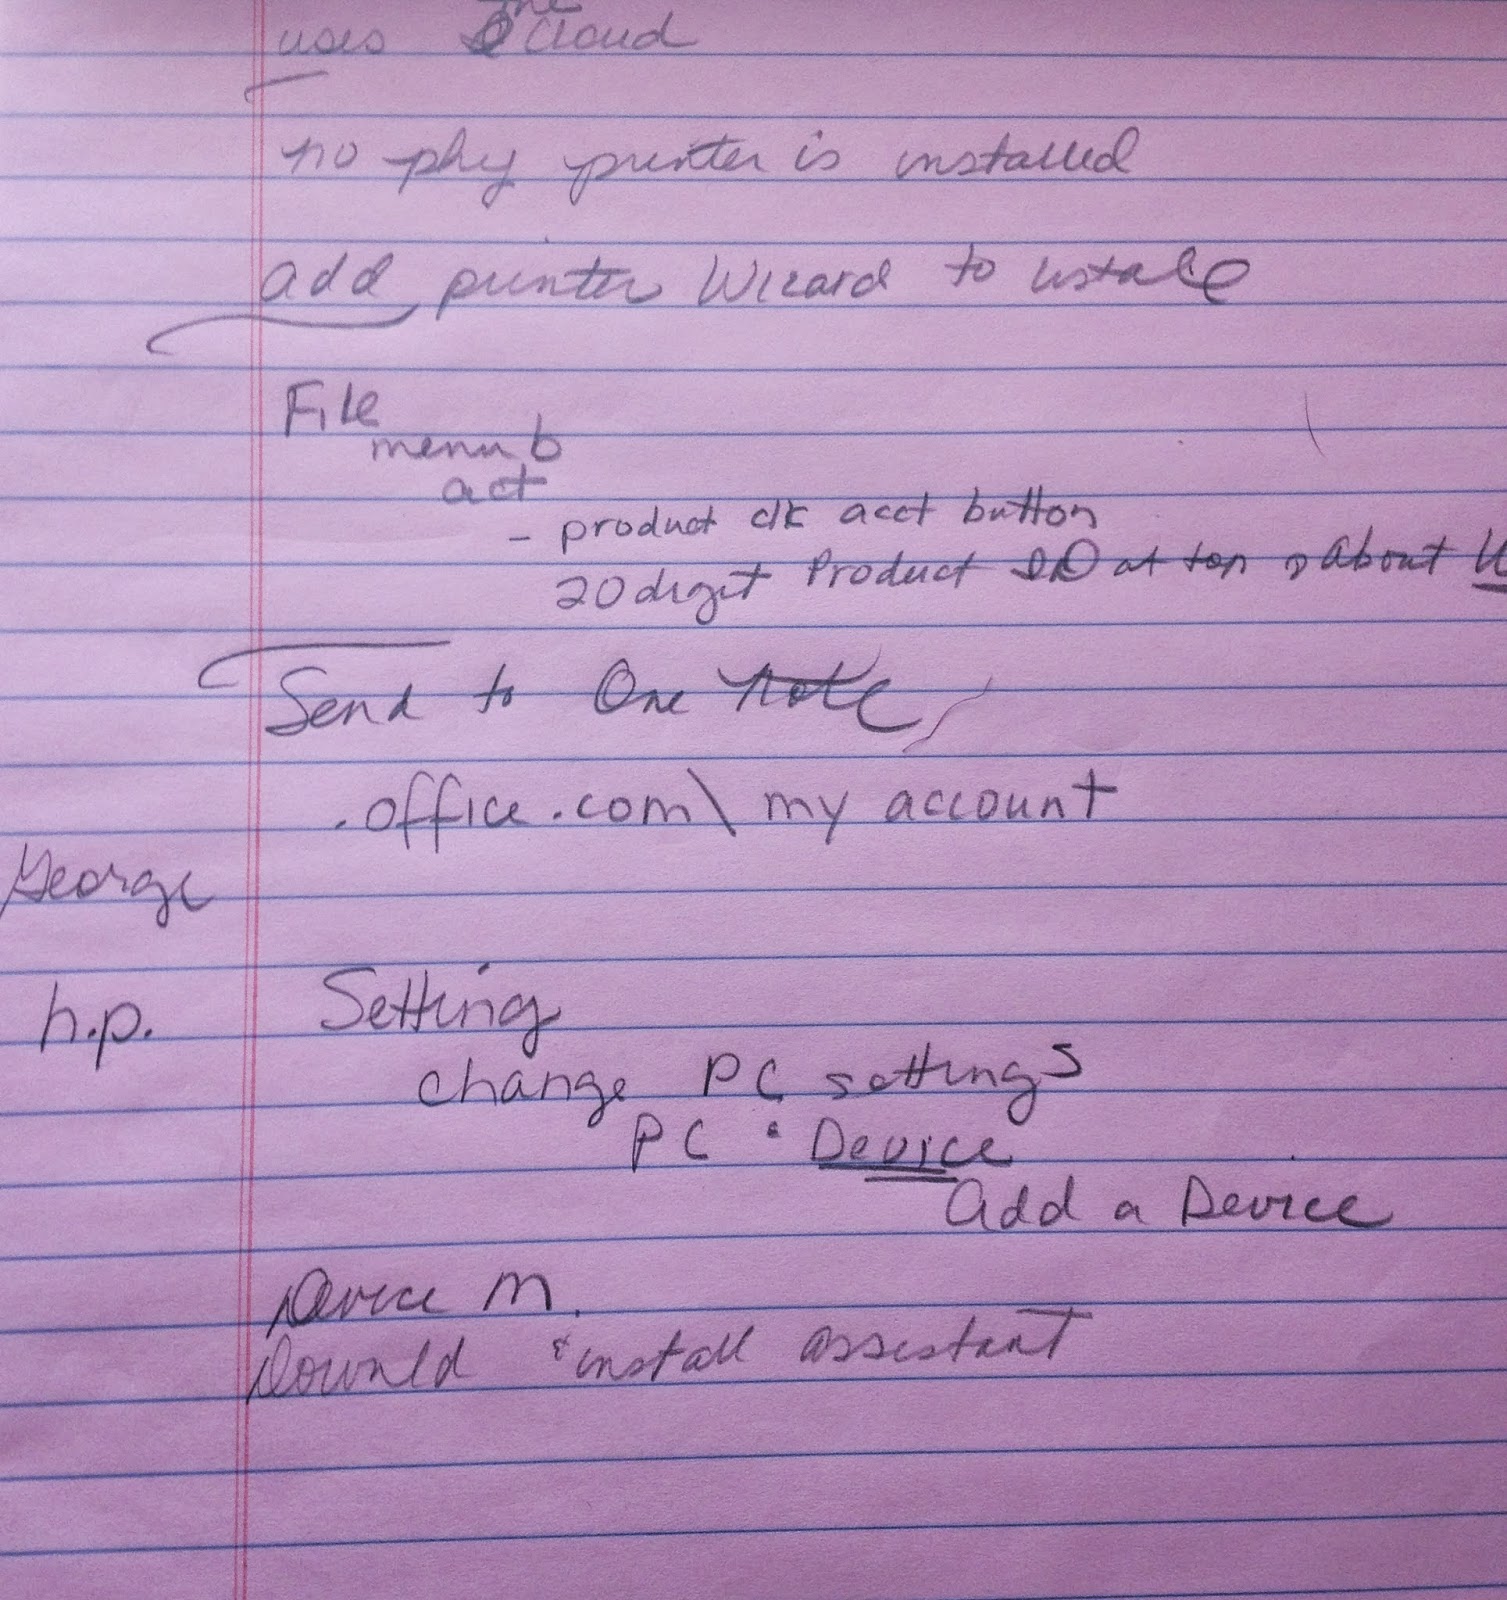 uses the Cloud
no phy printer is installed
add printer Wizard to install
File
menu b
act
- product clk acct button
20 digit Product ID at top about
Send to One Note
.office.com\ my account
George
h.p. Setting
change PC settings
PC • Device
Add a Device
Device M.
Downld & install assistant